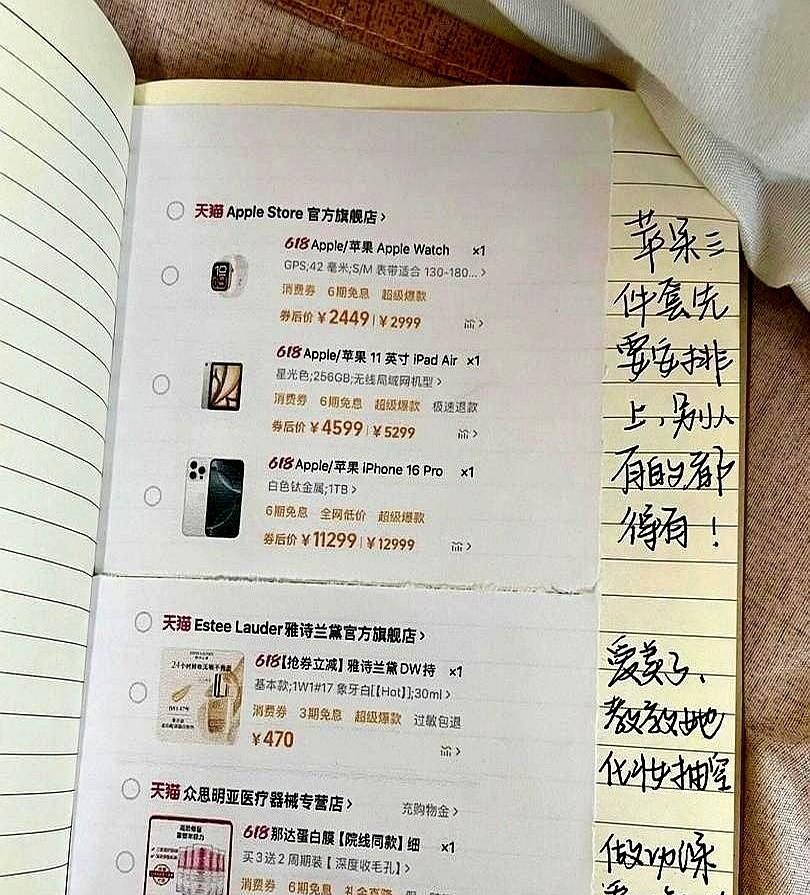 天猫 Apple Store 官方旗舰店 >
618 Apple/苹果 Apple Watch ×1
GPS;42 毫米;S/M 表带适合 130-180... >
消费券 6期免息 超级爆款
券后价 ¥2449 | ¥2999
618 Apple/苹果 11 英寸 iPad Air ×1
星光色;256GB;无线局域网机型 >
消费券 6期免息 超级爆款 极速退款
券后价 ¥4599 | ¥5299
618 Apple/苹果 iPhone 16 Pro ×1
白色钛金属;1TB >
6期免息 全网低价 超级爆款
券后价 ¥11299 | ¥12999
苹果三
件套先
要安排
上，别人
有的都
得有！
天猫 Estee Lauder雅诗兰黛官方旗舰店 >
618【抢券立减】雅诗兰黛DW持 ×1
基本款;1W1#17 象牙白[【Hot】];30ml >
消费券 3期免息 超级爆款 过敏包退
¥470
24小时
爱美了，
教教她
化妆抽空
天猫 众思明亚医疗器械专营店 > 充购物金 >
618 那达蛋白膜【院线同款】细 ×1
买3送2周期装【 深度收毛孔】 >
消费券 6期免息
做功